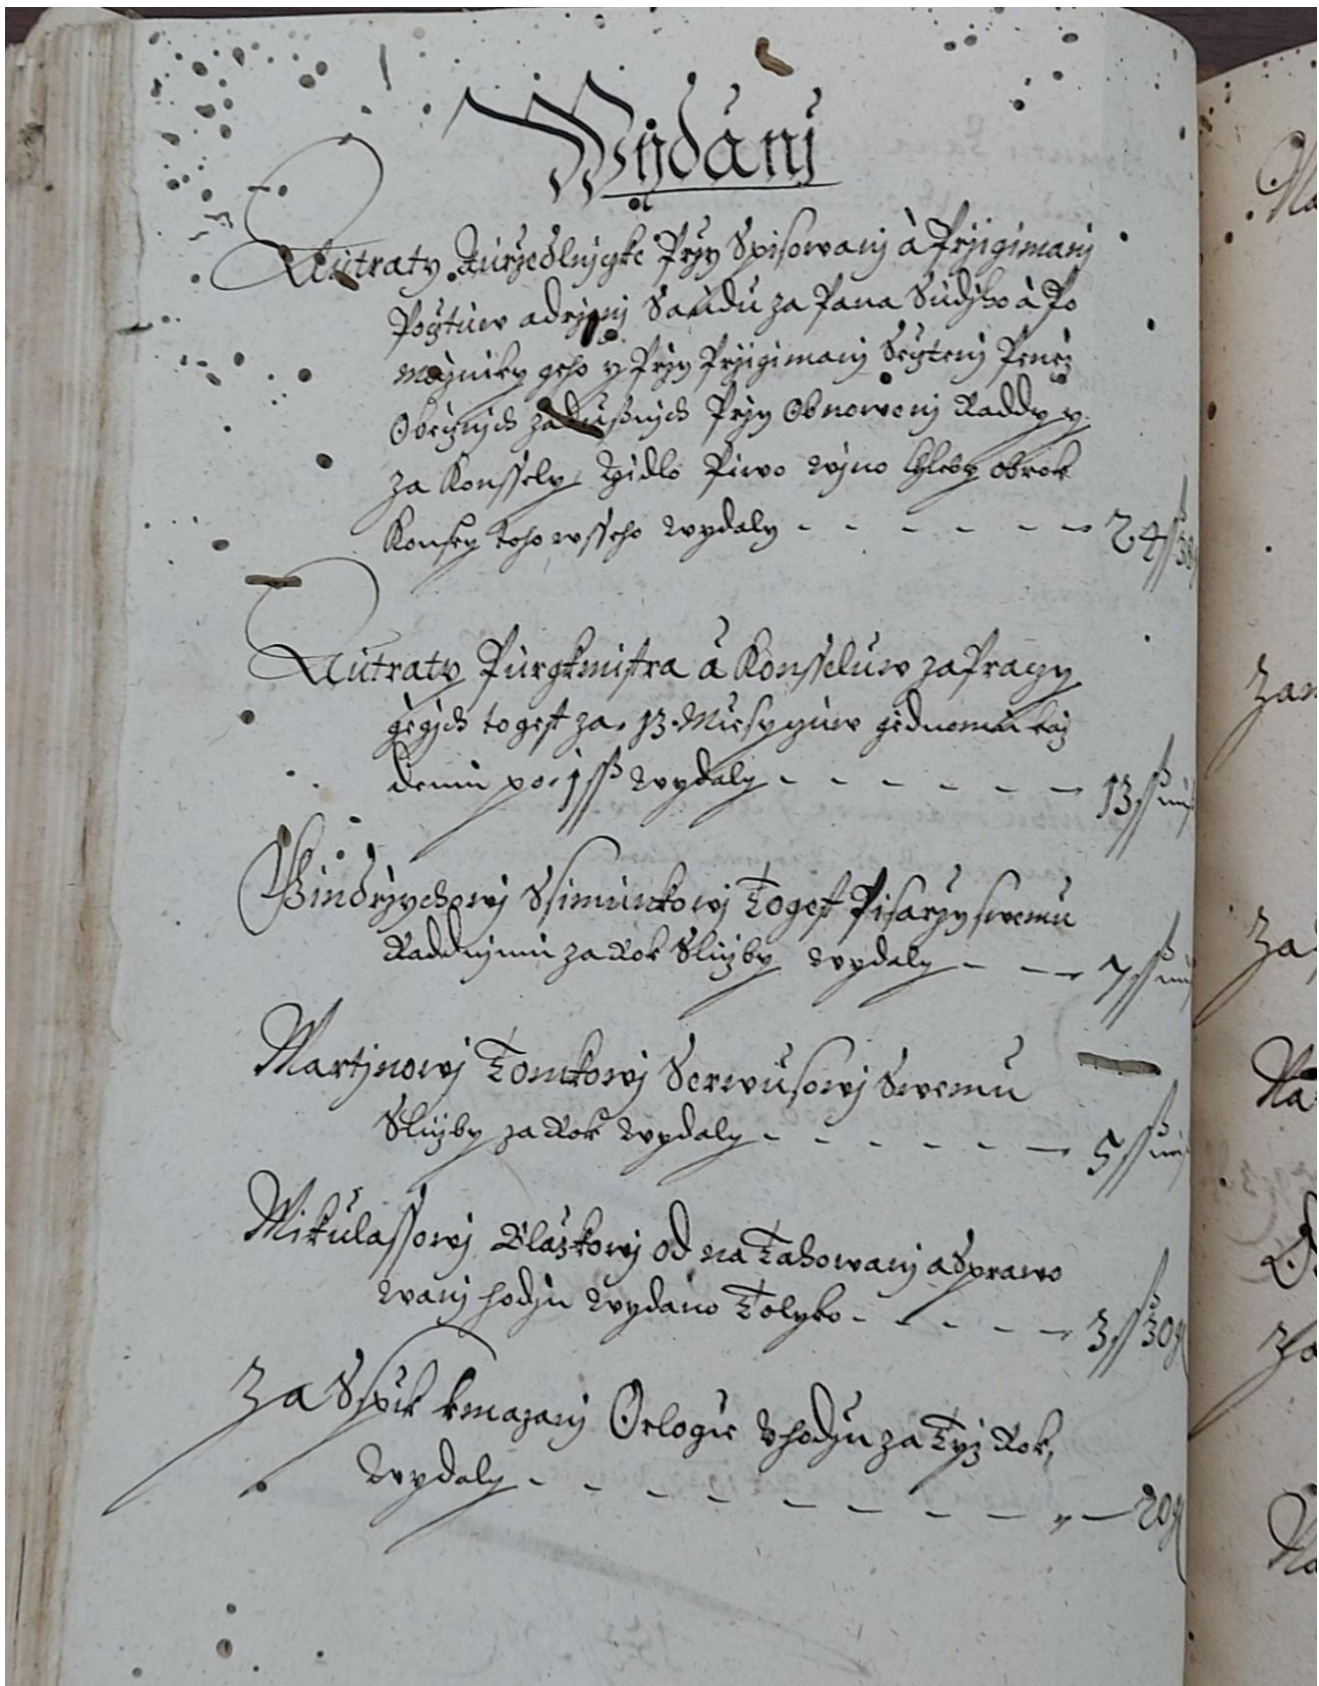 Wydánj
Autraty Auržedlnjcke Pržy Spisowanj à Pržigimanj
Počtuw a držnj Saudu za Pana Sudjho à Po
mocniky geho y Pržy Pržigimanj Sečtenj Peněz
Obecznjch zádussnjch Pržy Obnowenj Raddy y
za Konssely, Gidlo Piwo wjno Chleby obrok
Konsky toho wsseho wydaly - - - - - - 24 ß 38 g
Autraty Purgkmistra à Konsseluw za Praczy
gegich to gest za 13. Miesyczuw gednomu kaž
demu po 1 ß wydaly - - - - - - 13 ß mis
Gindržychowj Ssimunkowj To gest Pisaržy swemu
Raddnjmu za Rok Služby wydaly - - - 7 ß mis
Martjnowj Tomkowj Serwusowj Swemu
Služby za Rok wydaly - - - - - - 5 ß mis
Mikulassowj Blažkowj od na Tahowanj a Sprawo
wanj hodjn wydano Tolyko - - - - - 3 ß 30 g
Za Sspik k mazanj Orlogie v hodjn za Tyž Rok,
wydaly - - - - - - - - - 20 g